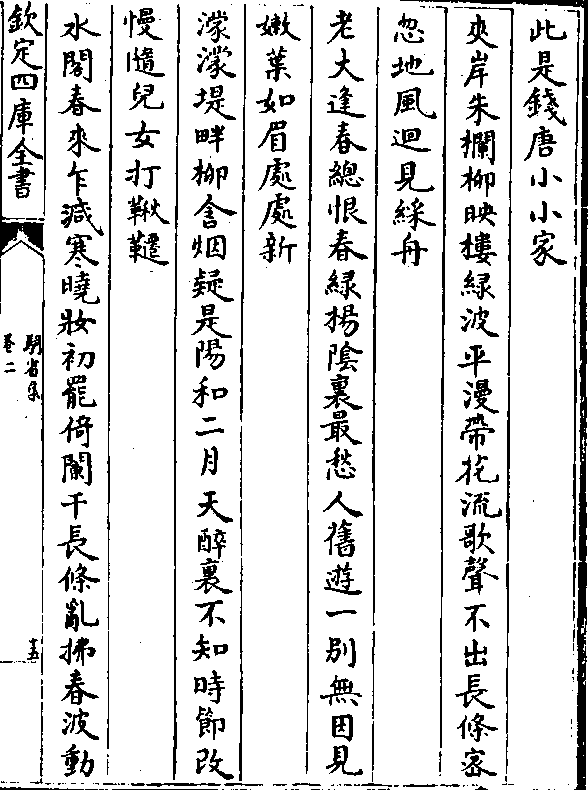 此是錢唐小小家
夾岸朱欄柳映樓緑波平漫帶花流歌聲不出長條密
忽地風迴見綵舟
老大逢春總恨春緑楊陰裏最愁人舊遊一別無因見
嫩葉如眉處處新
濛濛堤畔柳含烟疑是陽和二月天醉裏不知時節改
慢隨兒女打鞦韆
水閣春來乍減寒曉妝初罷倚闌干長條亂拂春波動
欽定四庫全書
騎省集
卷二
十五